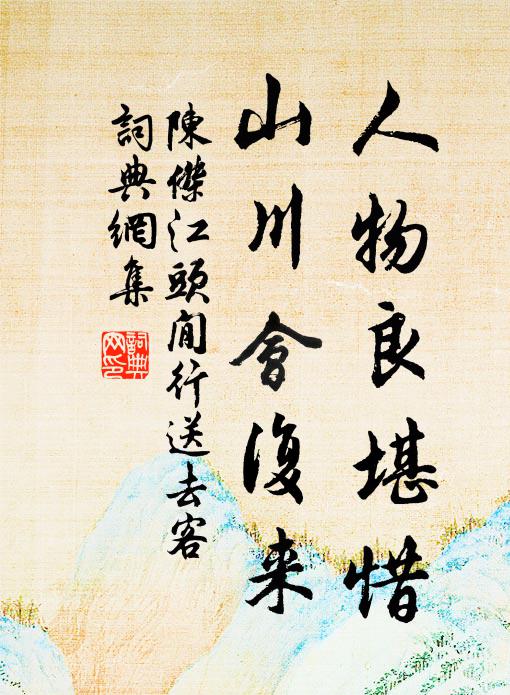 人物良堪惜
山川會復来
陳傑江頭閒行送去客
詞典網集
詞典網印